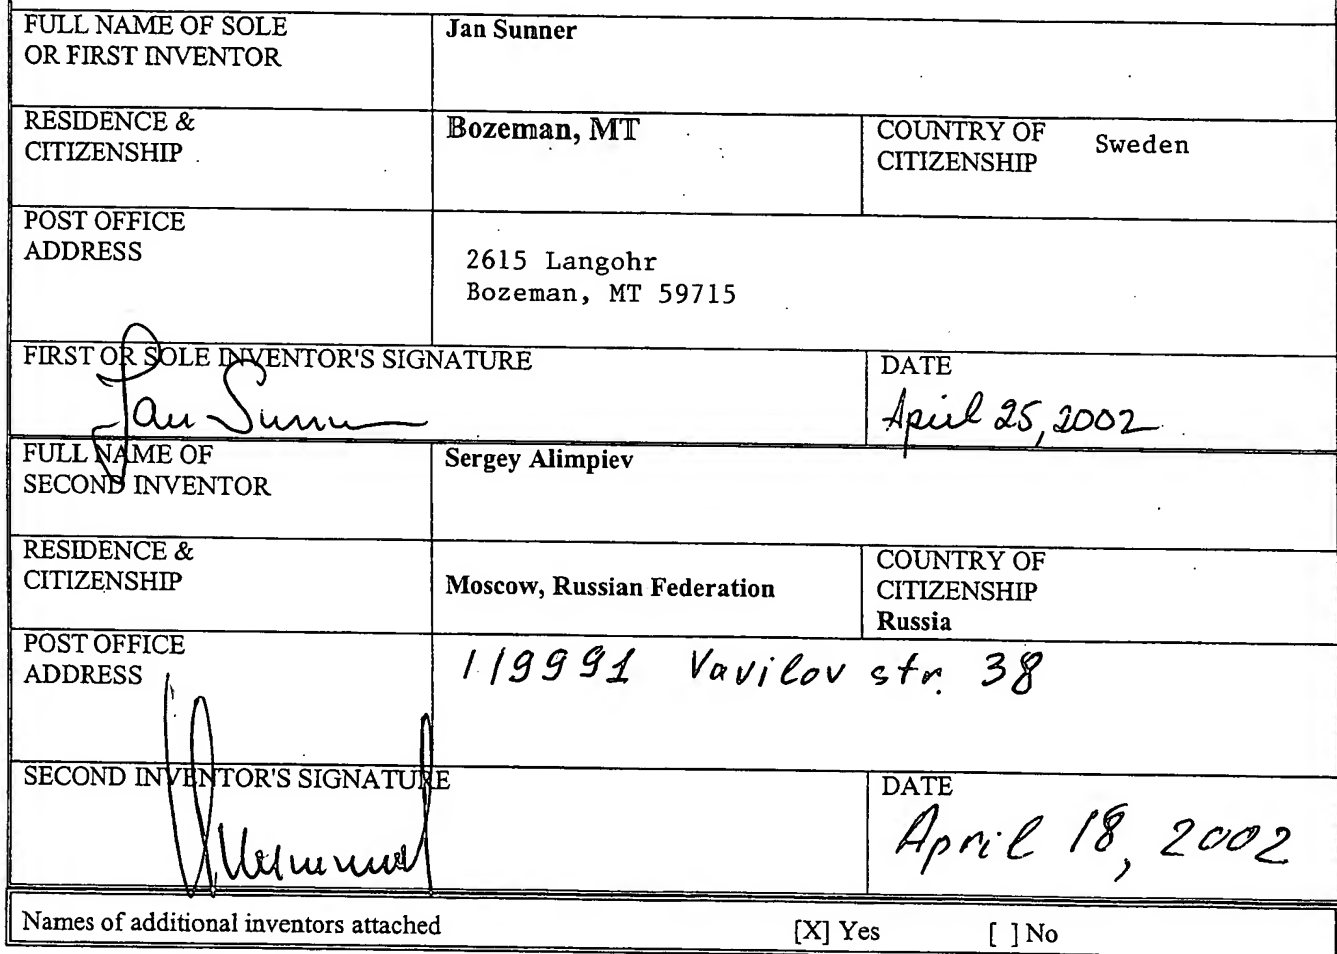 FULL NAME OF SOLE
OR FIRST INVENTOR
Jan Sunner
RESIDENCE &
CITIZENSHIP
Bozeman, MT
COUNTRY OF
CITIZENSHIP
Sweden
POST OFFICE
ADDRESS
2615 Langohr
Bozeman, MT 59715
FIRST OR SOLE INVENTOR'S SIGNATURE
Jan Sunner
DATE
April 25, 2002
FULL NAME OF
SECOND INVENTOR
Sergey Alimpiev
RESIDENCE &
CITIZENSHIP
Moscow, Russian Federation
COUNTRY OF
CITIZENSHIP
Russia
POST OFFICE
ADDRESS
119991 Vavilov str. 38
SECOND INVENTOR'S SIGNATURE
DATE
April 18, 2002
Names of additional inventors attached
[X] Yes
[ ] No